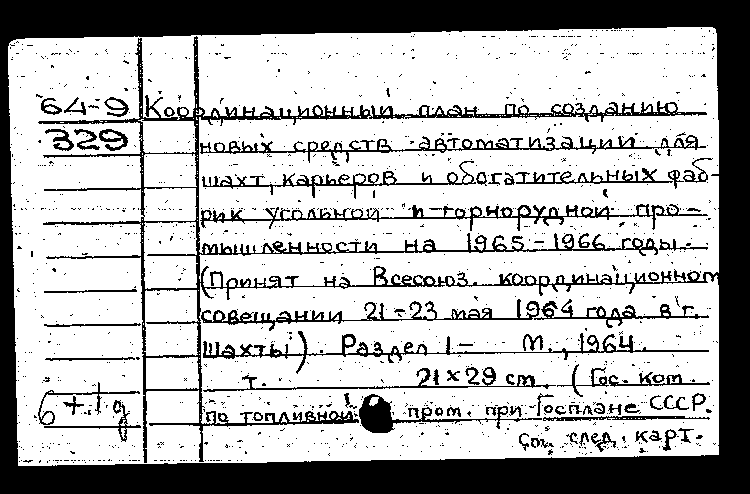 64-9 Координационный план по созданию
329 новых средств автоматизации для
шахт, карьеров и обогатительных фаб-
рик угольной и горнорудной про-
мышленности на 1965-1966 годы.
(Принят на Всесоюз. координационном
совещании 21-23 мая 1964 года в г.
Шахты). Раздел I- М., 1964.
т. 21×29 cm. (Гос. ком.
по топливной пром. при Госплане СССР.
См. след. карт.